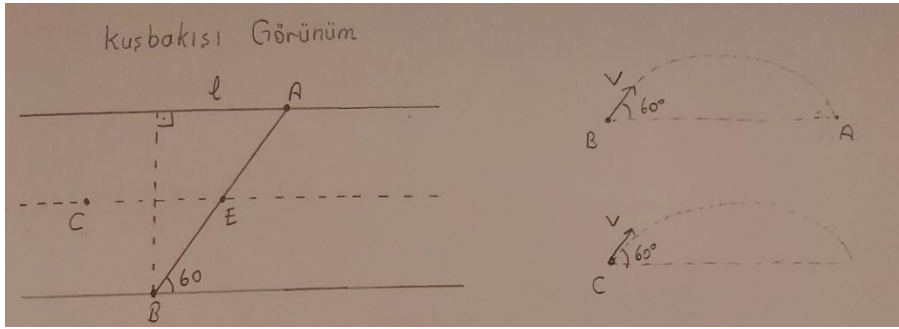 kuşbakışı Görünüm
l
A
C
E
60
B
V
60°
B
A
V
60°
C